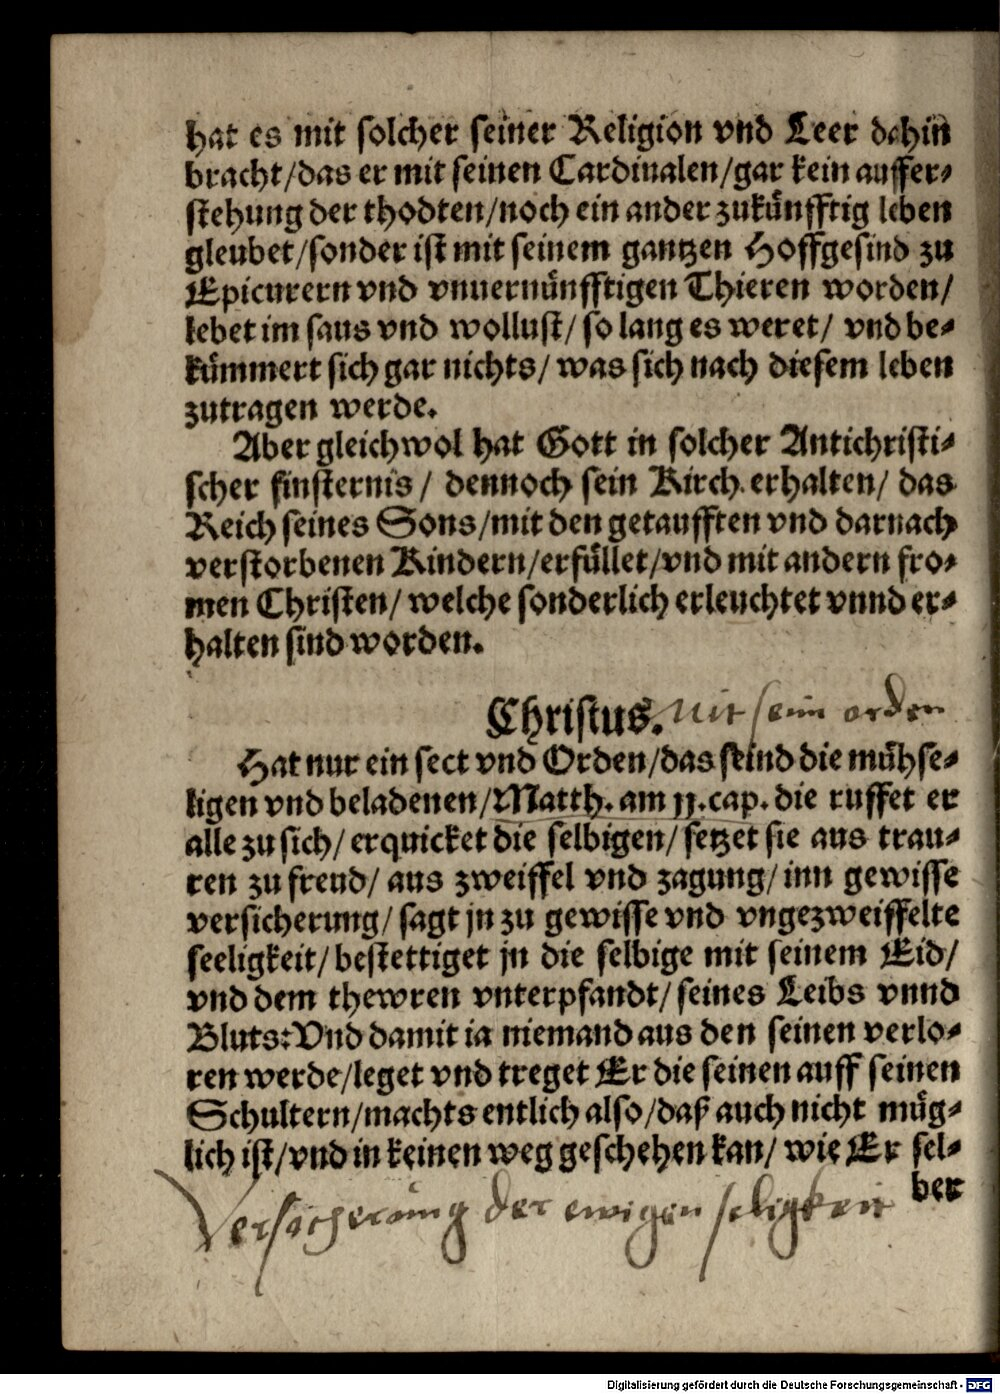 hat es mit solcher seiner Religion vnd Leer dahin
bracht/das er mit seinen Cardinalen/gar kein auffer⸗
stehung der thodten/noch ein ander zukünfftig leben
gleubet/sonder ist mit seinem gantzen Hoffgesind zu
Epicurern vnd vnuernünfftigen Thieren worden/
lebet im saus vnd wollust/ so lang es weret/ vnd be⸗
kümmert sich gar nichts/ was sich nach diesem leben
zutragen werde.
Aber gleichwol hat Gott in solcher Antichristi⸗
scher finsternis/ dennoch sein Kirch erhalten/ das
Reich seines Sons/mit den getaufften vnd darnach
verstorbenen Kindern/erfüllet/vnd mit andern fro⸗
men Christen/ welche sonderlich erleuchtet vnnd er⸗
halten sind worden.
Christus. mit seim orden
Hat nur ein sect vnd Orden/das seind die mühse⸗
ligen vnd beladenen/Matth. am 11. cap. die ruffet er
alle zu sich/ erquicket die selbigen/ setzet sie aus trau⸗
ren zu freud/ aus zweiffel vnd zagung/ inn gewisse
versicherung/ sagt jn zu gewisse vnd vngezweiffelte
seeligkeit/ bestettiget jn die selbige mit seinem Eid/
vnd dem thewren vnterpfandt/ seines Leibs vnnd
Bluts: Vnd damit ia niemand aus den seinen verlo⸗
ren werde/leget vnd treget Er die seinen auff seinen
Schultern/machts entlich also/daß auch nicht müg⸗
lich ist/vnd in keinen weg geschehen kan/ wie Er sel⸗
ber
Versicherung der ewigen seligkeit
Digitalisierung gefördert durch die Deutsche Forschungsgemeinschaft - DFG